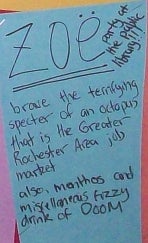 ZOË
party at
the public
library!!
brave the terrifying
specter of an octopus
that is the Greater
Rochester Area job
market
also, manthos and
miscellaneous fizzy
drink of DOOM